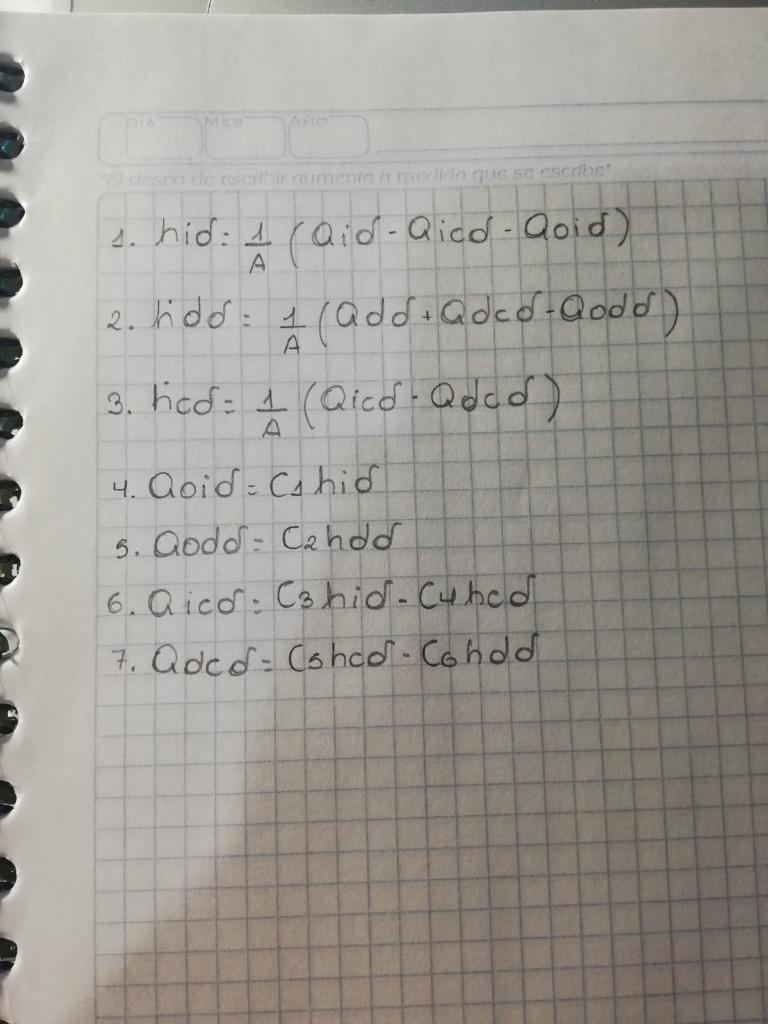 DÍA MES AÑO
"El deseo de escribir aumenta a medida que se escribe"
1. hid = 1/A (Qid - Qicd - Qoid)
2. ḣdd = 1/A (Qdd + Qdcd - Qodd)
3. ḣcd = 1/A (Qicd - Qdcd)
4. Qoid = C1hid
5. Qodd = C2hdd
6. Qicd = C3hid - C4hcd
7. Qdcd = C5hcd - C6hdd